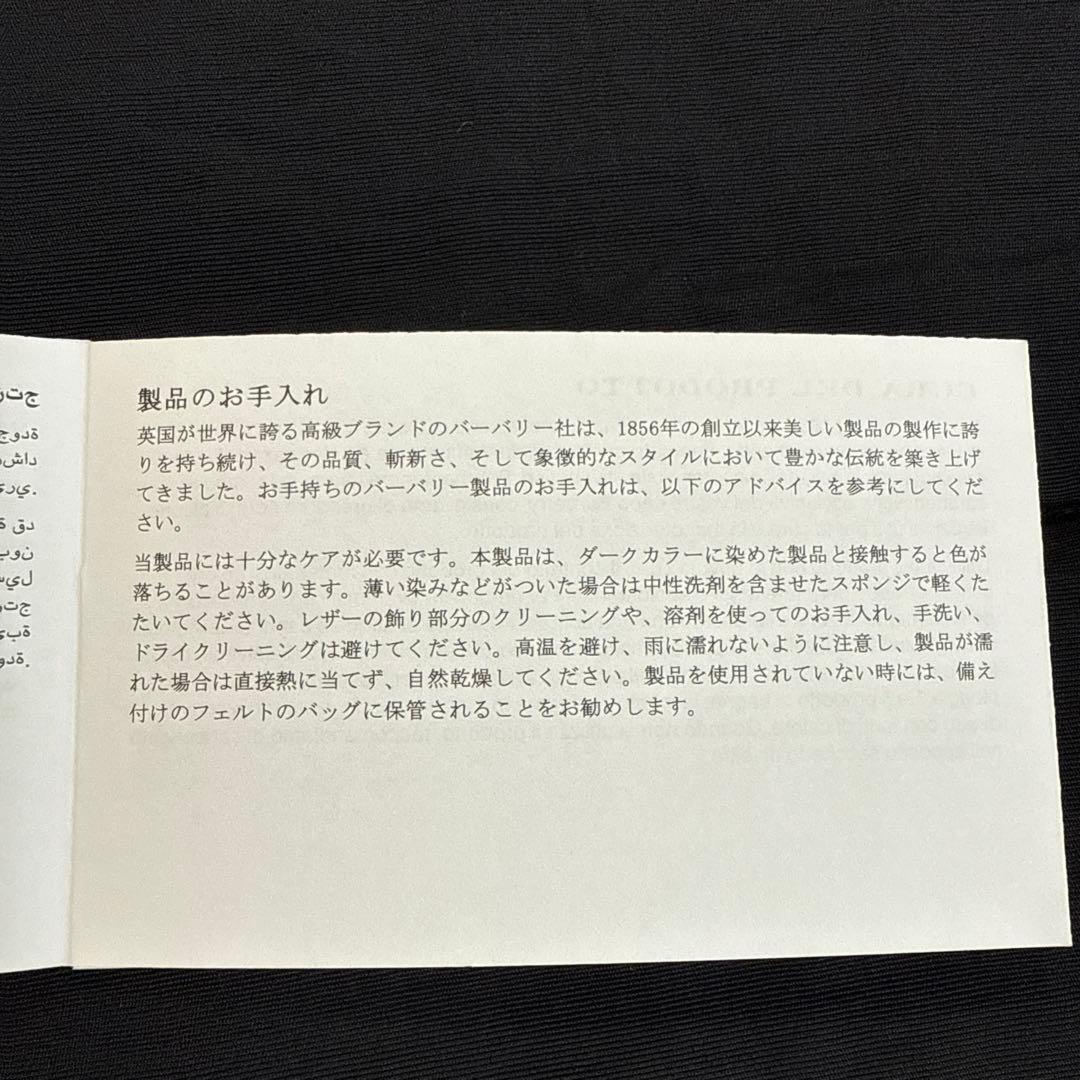 製品のお手入れ
英国が世界に誇る高級ブランドのバーバリー社は、1856年の創立以来美しい製品の製作に誇
りを持ち続け、その品質、斬新さ、そして象徴的なスタイルにおいて豊かな伝統を築き上げ
てきました。お手持ちのバーバリー製品のお手入れは、以下のアドバイスを参考にしてくだ
さい。
当製品には十分なケアが必要です。本製品は、ダークカラーに染めた製品と接触すると色が
落ちることがあります。薄い染みなどがついた場合は中性洗剤を含ませたスポンジで軽くた
たいてください。レザーの飾り部分のクリーニングや、溶剤を使ってのお手入れ、手洗い、
ドライクリーニングは避けてください。高温を避け、雨に濡れないように注意し、製品が濡
れた場合は直接熱に当てず、自然乾燥してください。製品を使用されていない時には、備え
付けのフェルトのバッグに保管されることをお勧めします。